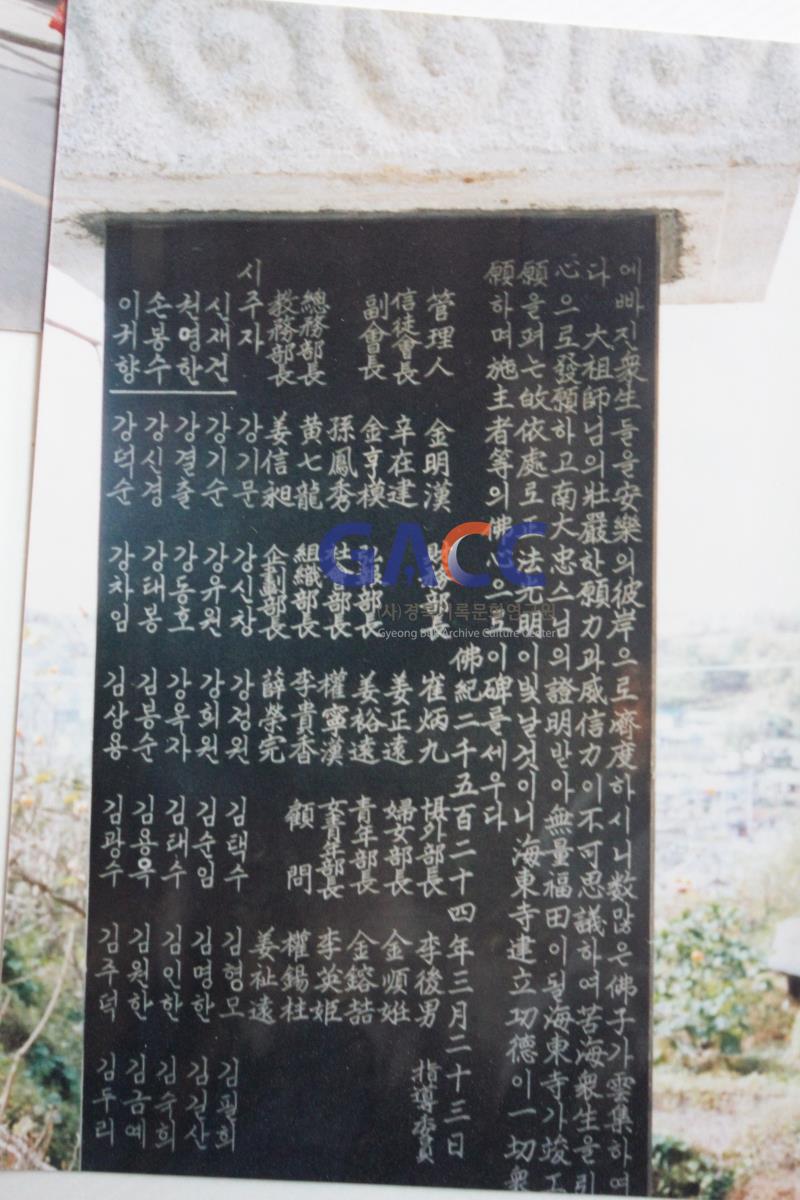 에 빠지 衆生들을 安樂의 彼岸으로 濟度하시니 数많은 佛子가 雲集하여
다 大祖師님의 壯嚴한 願力과 威信力이 不可思議하여 苦海衆生을 引
心으로 發願하고 南大忠스님의 證明받아 無量福田이 될 海東寺가 竣工
願을 펴는 依處로 法光明이 빛날것이니 海東寺建立功德이 一切衆
願하며 施主者等의 佛 으로 이 碑를 세우다
佛紀二千五百二十四年三月二十三日
管理人 金明漢 財務部長 崔炳九 涉外部長 李後男 指導委員
信徒會長 辛在建 姜正遠 婦女部長 金順姙
副會長 金亨模 部長 姜裕遠 青年部長 金鎔喆
孫鳳秀 部長 權寧漢 女青年部長 李英姫
總務部長 黄七龍 組織部長 李貴香 顧問 權錫柱
教務部長 姜信昶 企劃部長 薛榮完 姜祉遠
시주자 강기문 강신창 강성원 김택수 김형모 김필희
신재건 강기순 강유원 강희원 김순임 김명한 김길산
권영한 강결출 강동호 강옥자 김태수 김인한 김숙희
손봉수 강신경 강태봉 김봉순 김용옥 김원한 김금예
이귀향 강덕순 강차임 김상용 김광수 김주덕 김두리
GACC
(사)경북기록문화연구원
Gyeong Buk Archive Culture Center